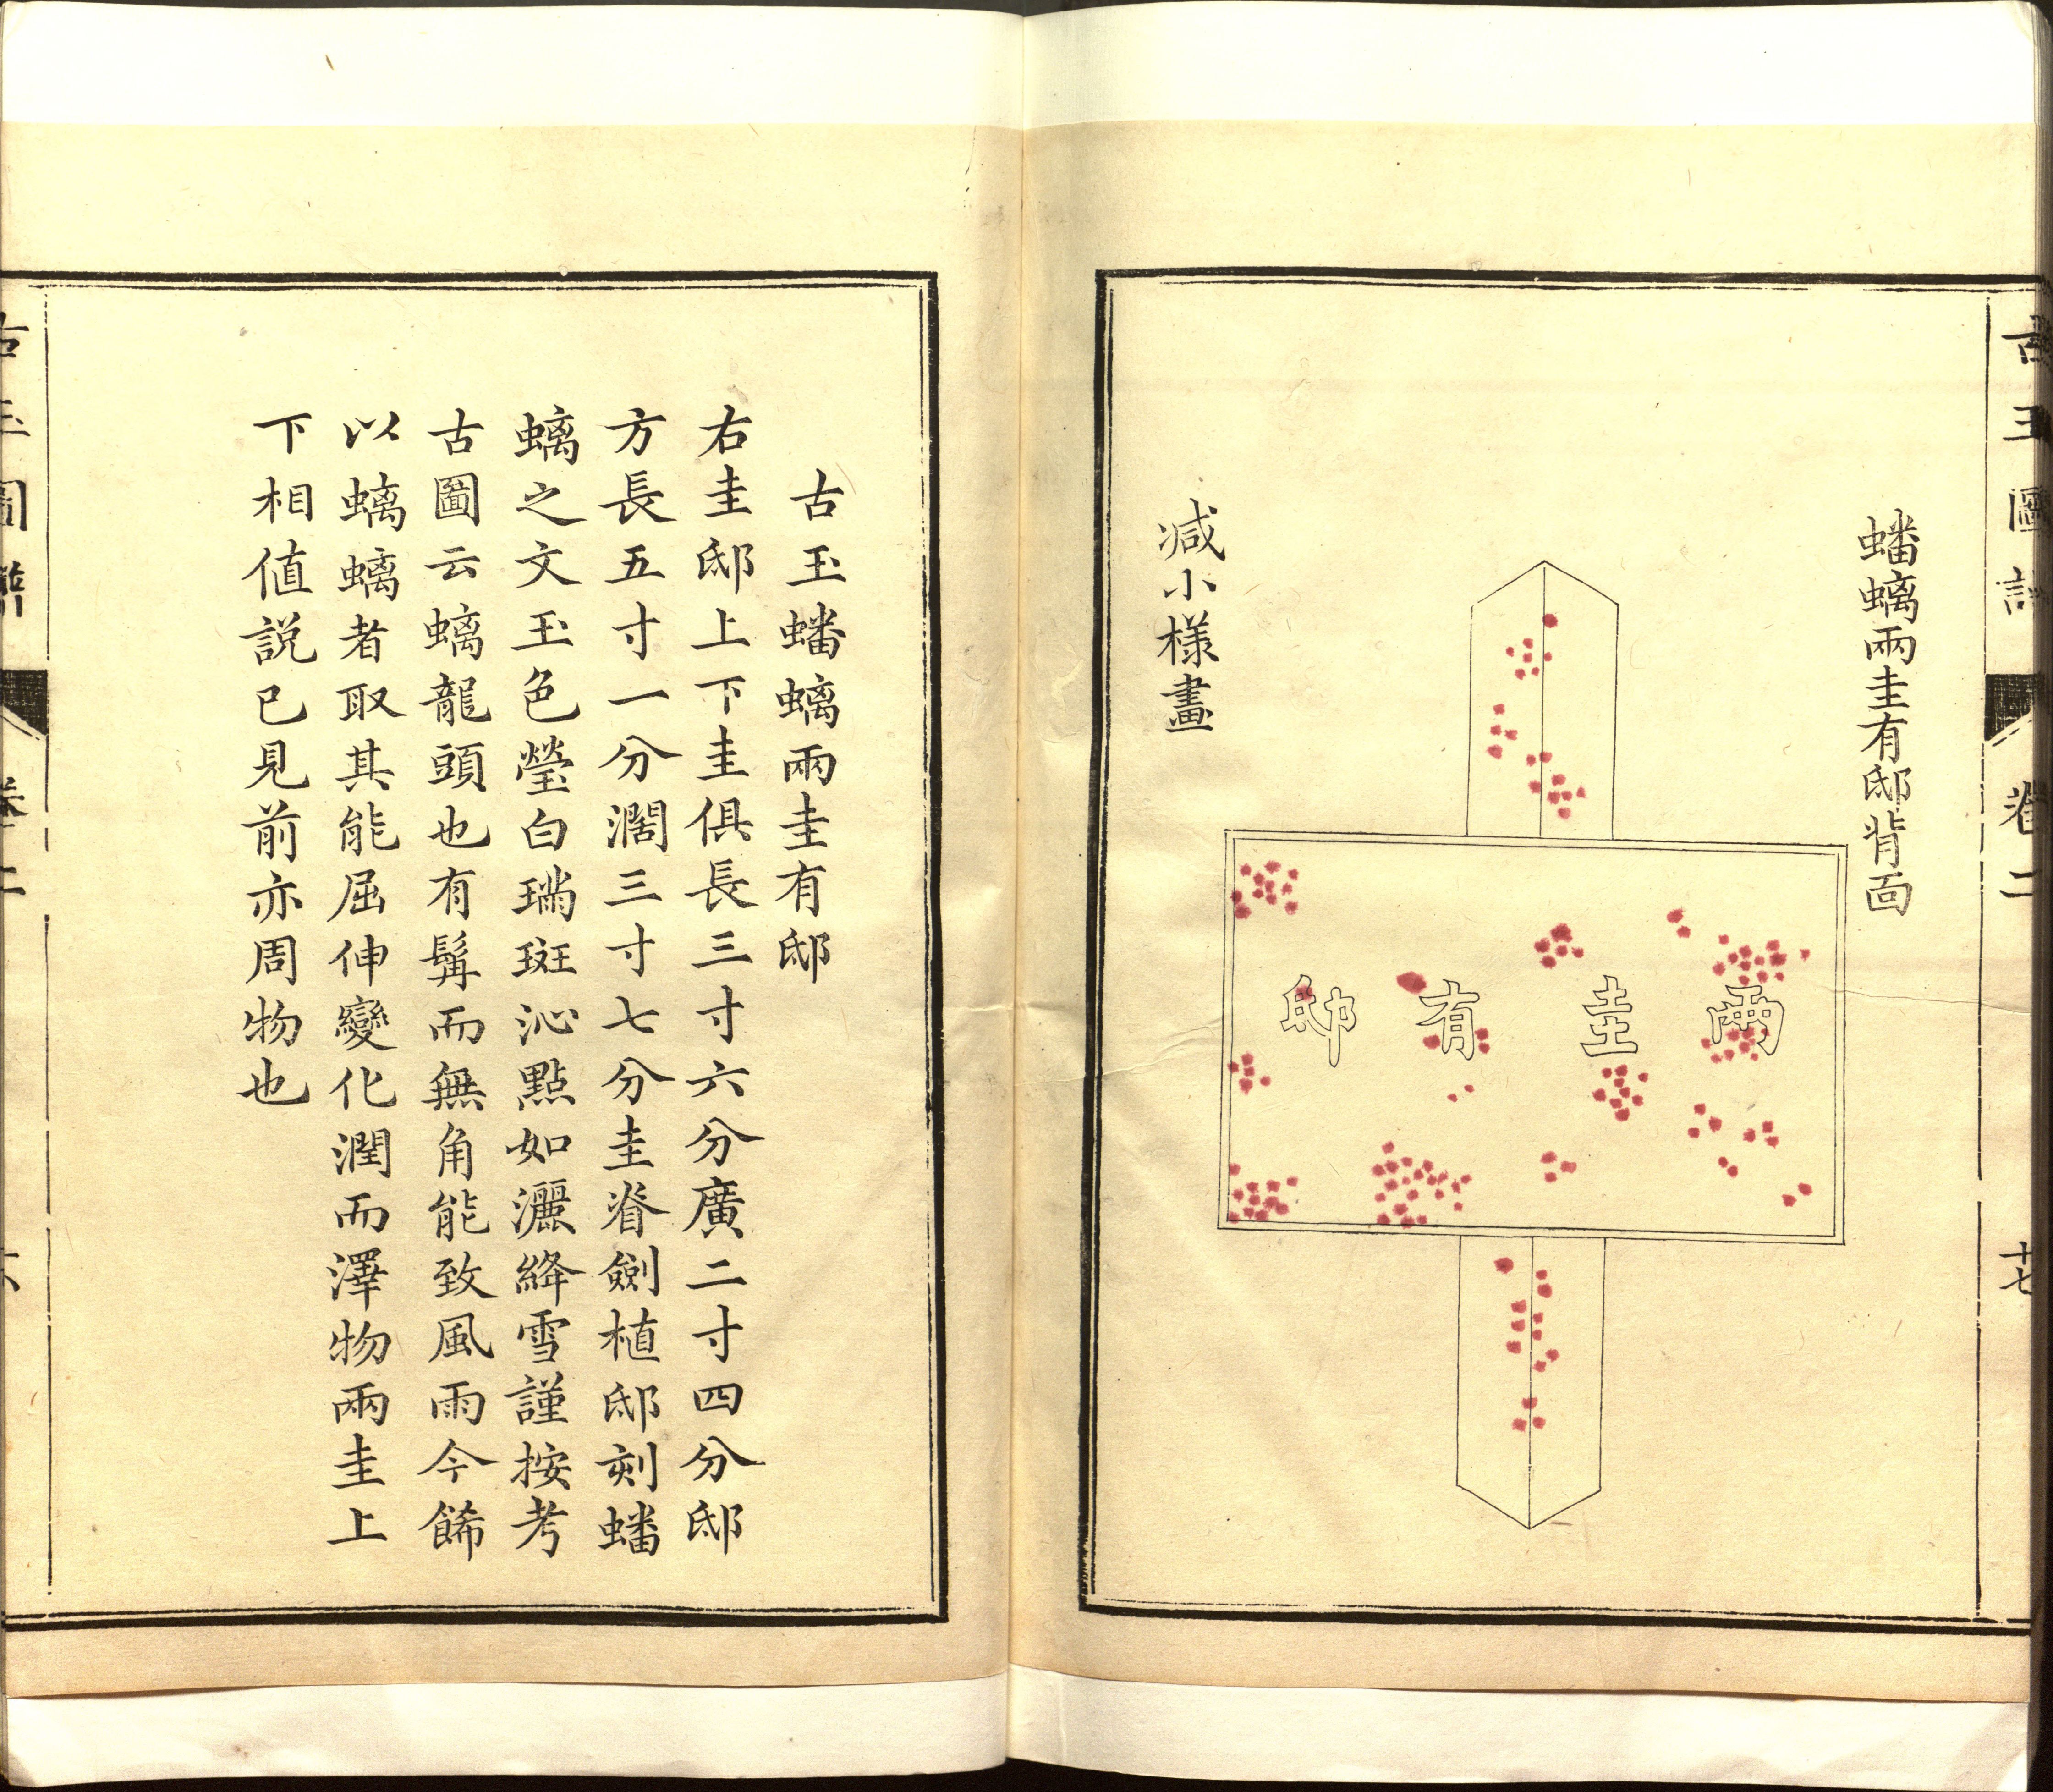 古玉圖譜 卷二 十七
蟠螭兩圭有邸背面
兩圭有邸
減小様畫
古玉蟠螭兩圭有邸
右圭邸上下圭俱長三寸六分廣二寸四分邸
方長五寸一分濶三寸七分圭脊劍植邸刻蟠
螭之文玉色瑩白璊斑沁點如灑絳雪謹按考
古圖云螭龍頭也有髯而無角能致風雨今餙
以螭螭者取其能屈伸變化潤而澤物兩圭上
下相值説已見前亦周物也